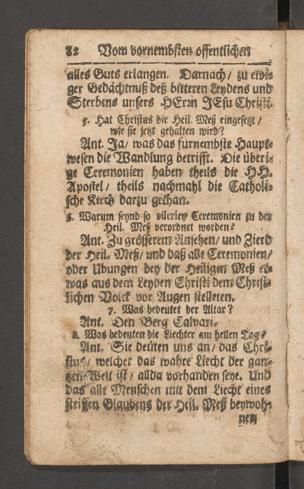 82 Vom vornembsten offentlichen
alles Guts erlangen. Darnach/ zu ewi-
ger Gedächtnuß deß bitteren Leydens und
Sterbens unsers HErrn JEsu Christi.
5. Hat Christus die Heil. Meß eingesetzt/
wie sie jetzt gehalten wird?
Ant. Ja/ was das fürnembste Haupt-
wesen die Wandlung betrifft. Die übri-
ge Ceremonien haben theils die HH.
Apostel/ theils nachmahl die Catholi-
sche Kirch darzu gethan.
6. Warum seynd so vilerley Ceremonien zu der
Heil. Meß verordnet worden?
Ant. Zu grösserem Ansehen/ und Zierd
der Heil. Meß/ und daß alle Ceremonien/
oder Ubungen bey der Heiligen Meß et-
was aus dem Leyden Christi dem Christ-
lichen Volck vor Augen stelleten.
7. Was bedeutet der Altar?
Ant. Den Berg Calvari.
8. Was bedeuten die Liechter am hellen Tag?
Ant. Sie deuten uns an/ das Chri-
stus/ welcher das wahre Liecht der gan-
tzen Welt ist/ allda vorhanden seye. Und
das alle Menschen mit dem Liecht eines
steiffen Glaubens der Heil. Meß beywoh-
nen